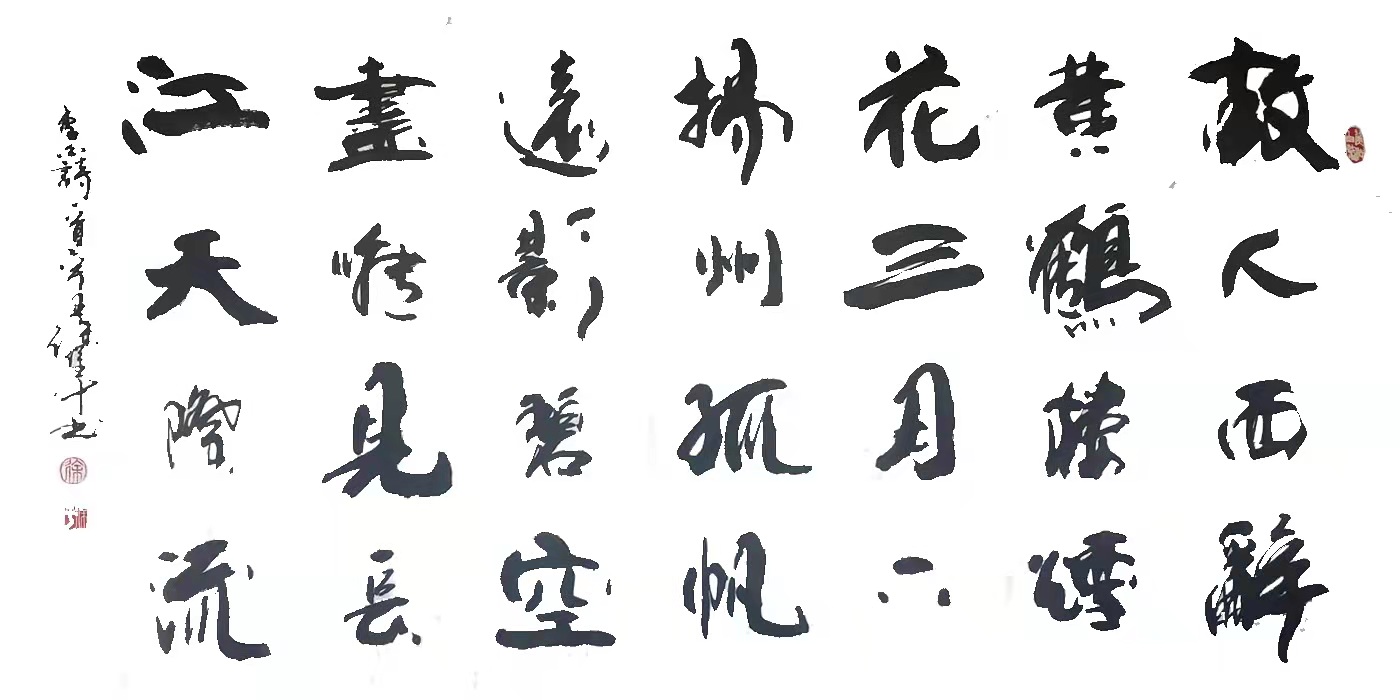 故人西辭
黃鶴樓煙
花三月下
揚州孤帆
遠影碧空
盡唯見長
江天際流
李白詩一首